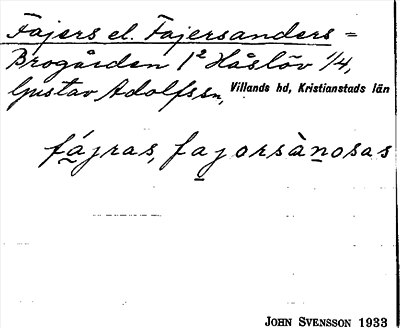 Fajers el. Fajersanders =
Brogården 1² Håslöv 1/4,
Gustav Adolfs sn, Villands hd, Kristianstads län
fájras, fajorsànosas
JOHN SVENSSON 1933